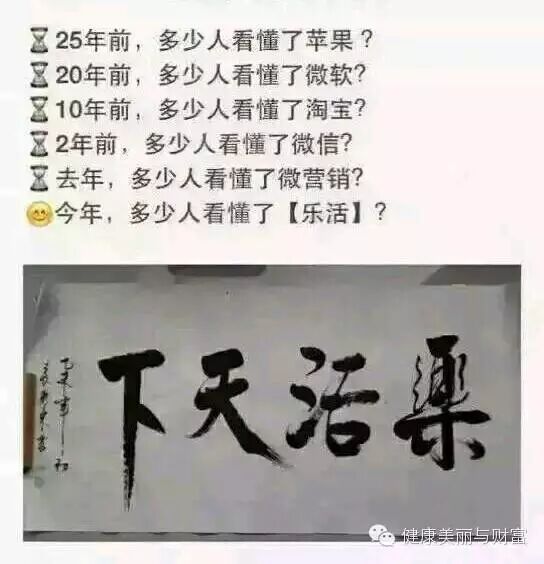 ⏳25年前，多少人看懂了苹果？
⏳20年前，多少人看懂了微软？
⏳10年前，多少人看懂了淘宝？
⏳2年前，多少人看懂了微信？
⏳去年，多少人看懂了微营销？
😊今年，多少人看懂了【乐活】？
樂活天下
乙未年初
健康美丽与财富